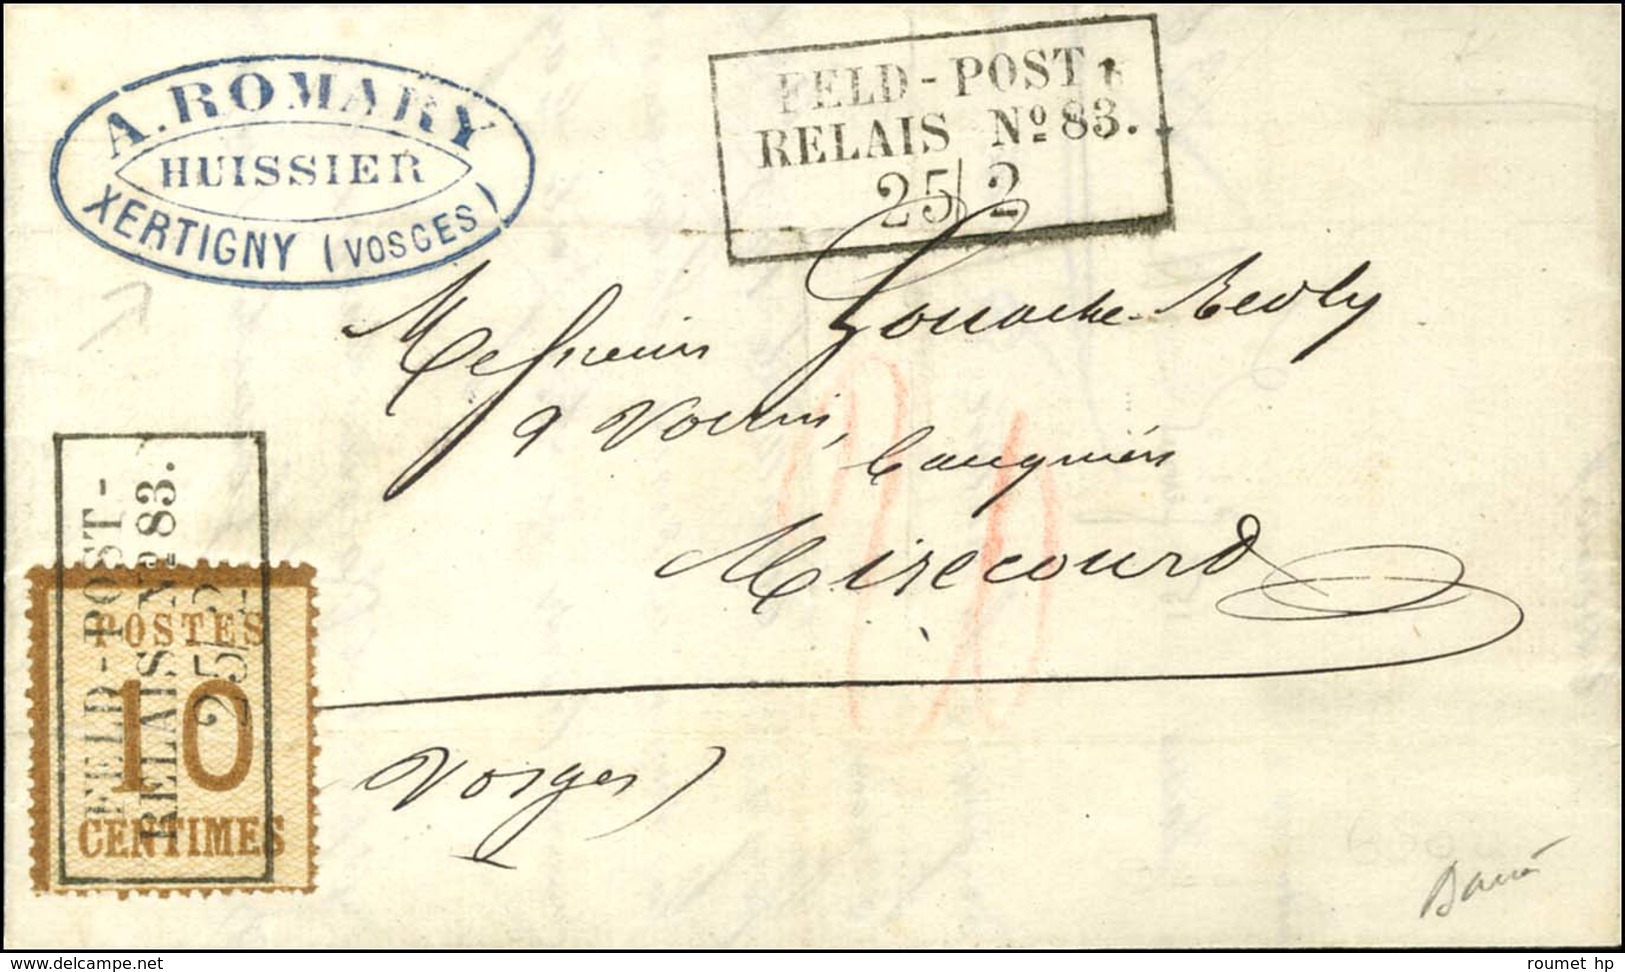 A. ROMARY
HUISSIER
XERTIGNY (VOSGES)
FELD-POST
RELAIS Nº 83.
25/2
Messieurs Gouache
& Voirin,
Banquiers
Mirecourt
Vosges)
FELD-POST-
RELAIS Nº 83.
25/2
POSTES
10
CENTIMES
roumet hp